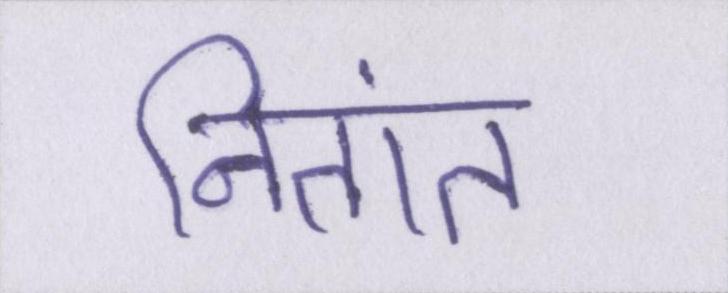 नितांत